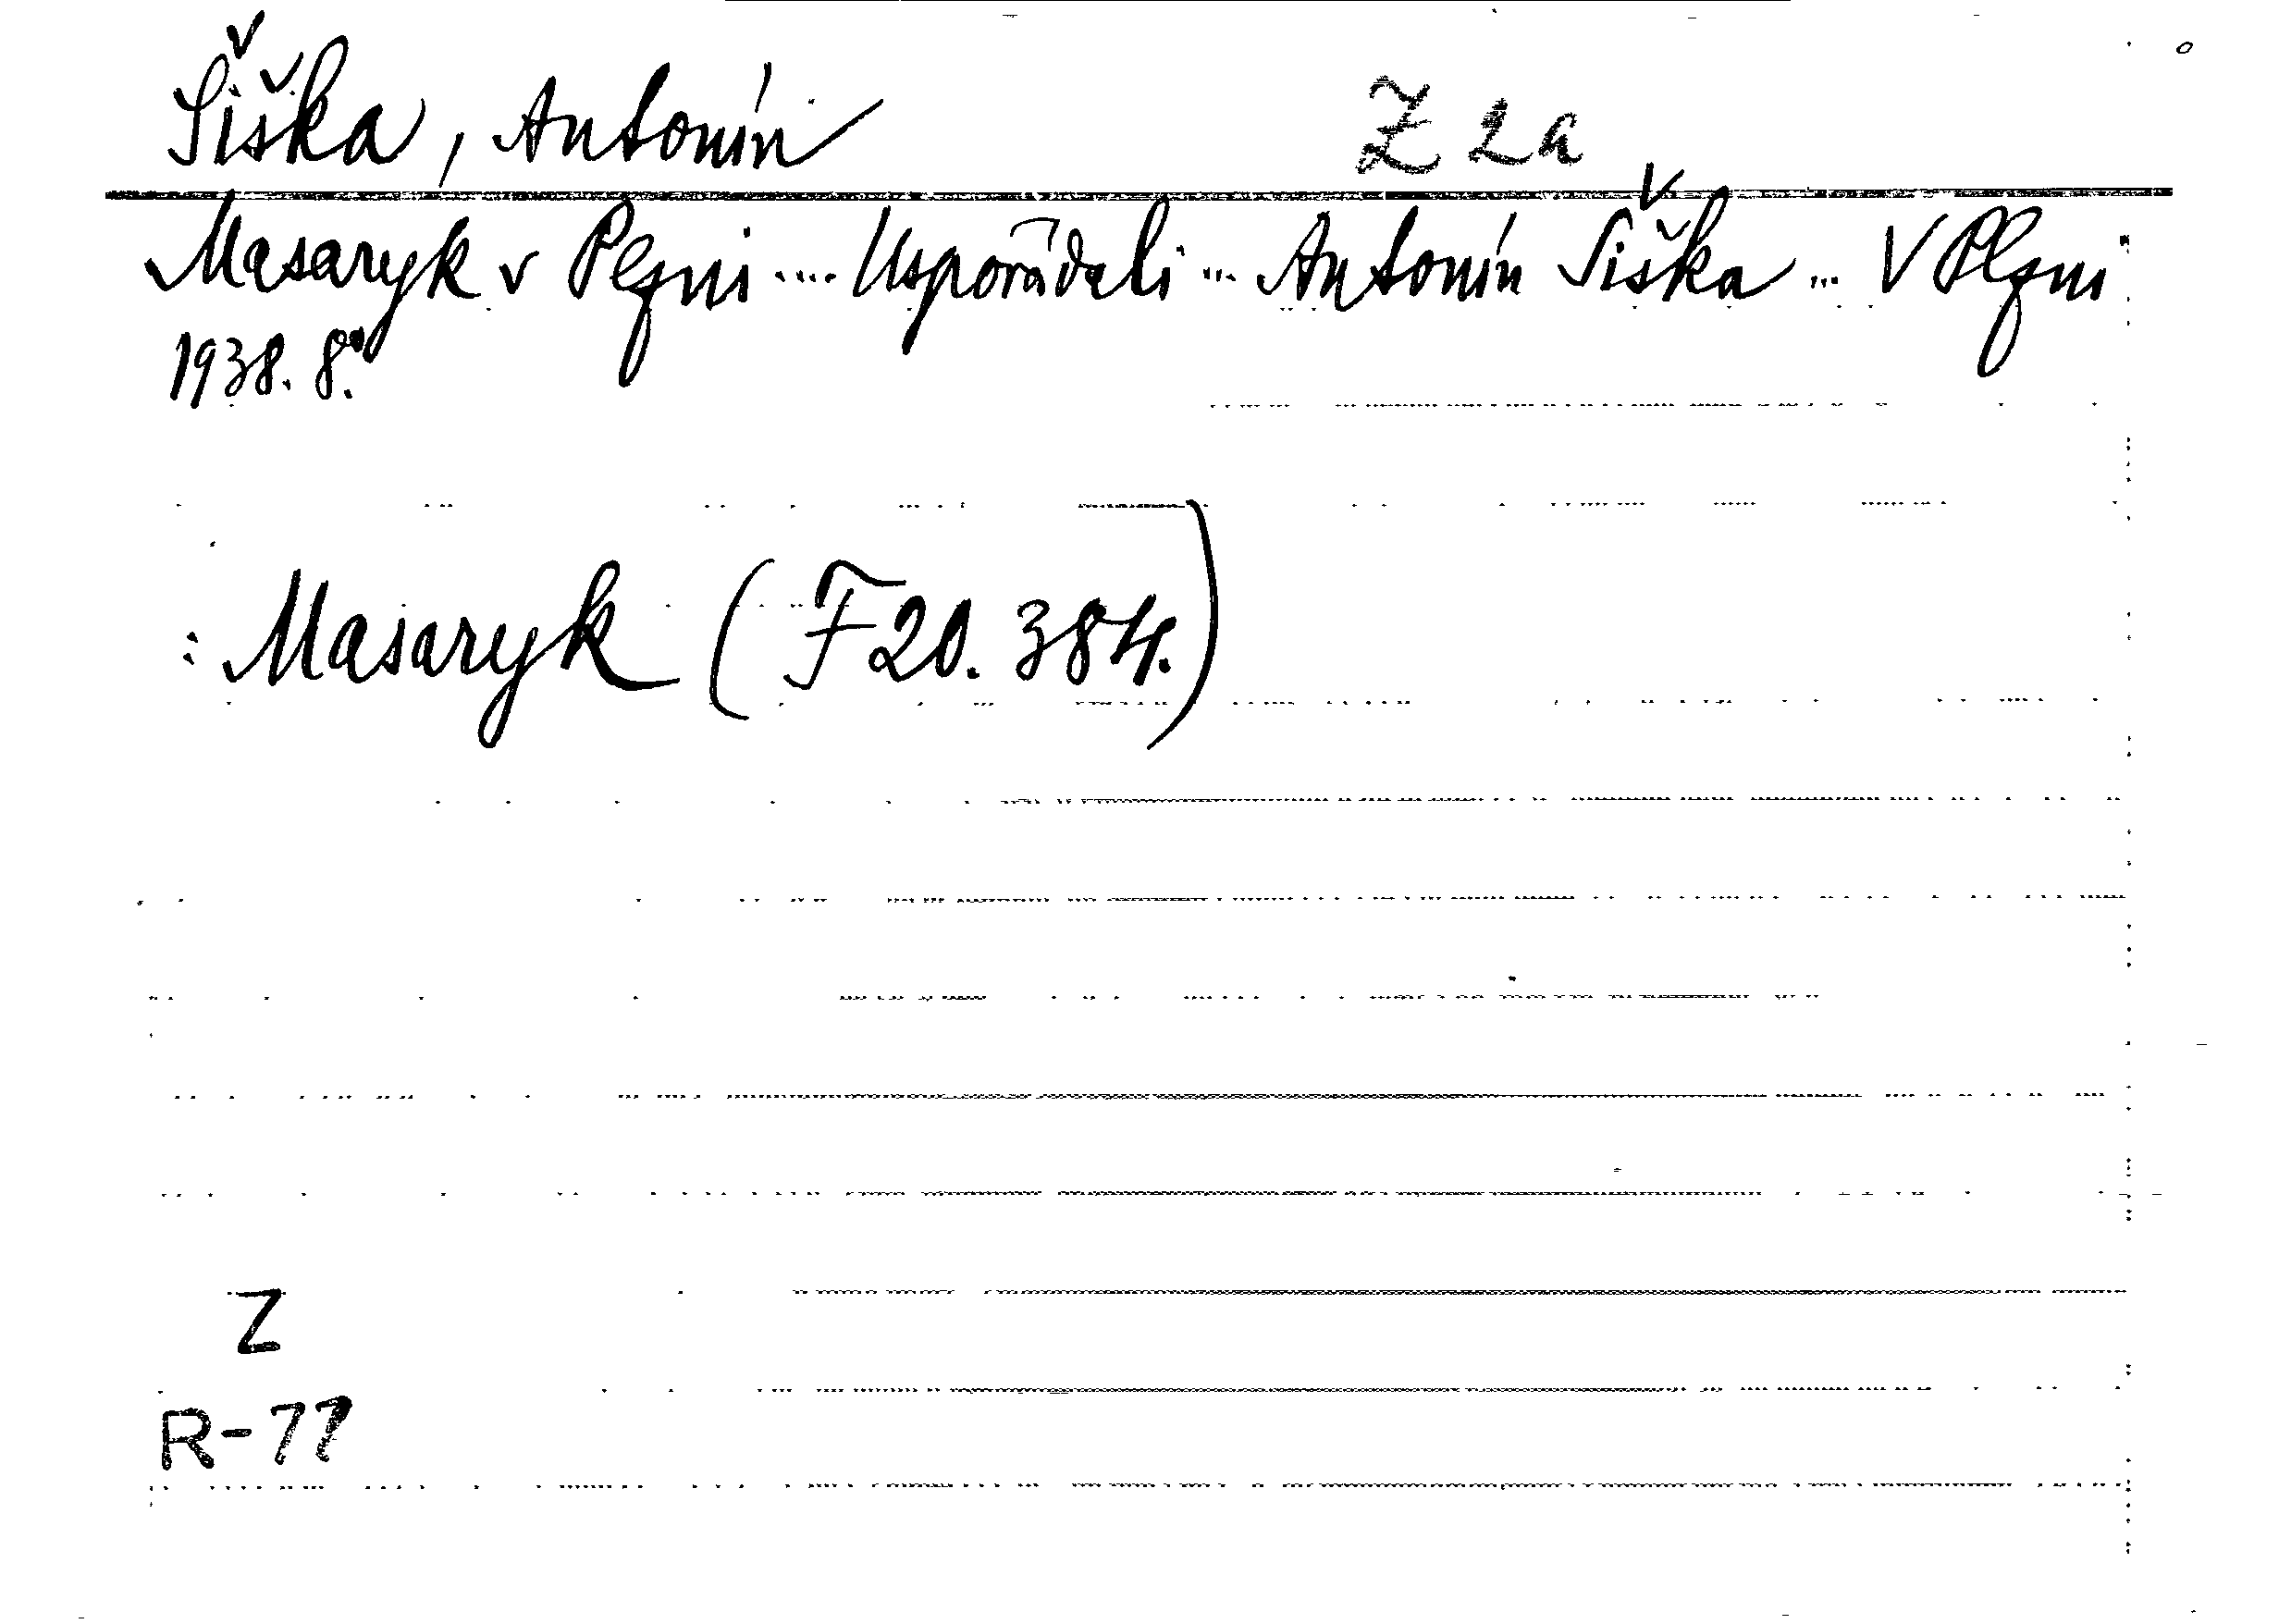 Šiška, Antonín Z 2a
Masaryk v Plzni .... Uspořádali ... Antonín Šiška ... V Plzni
1938. 8°.
: Masaryk (F 20. 384.)
Z
R-77